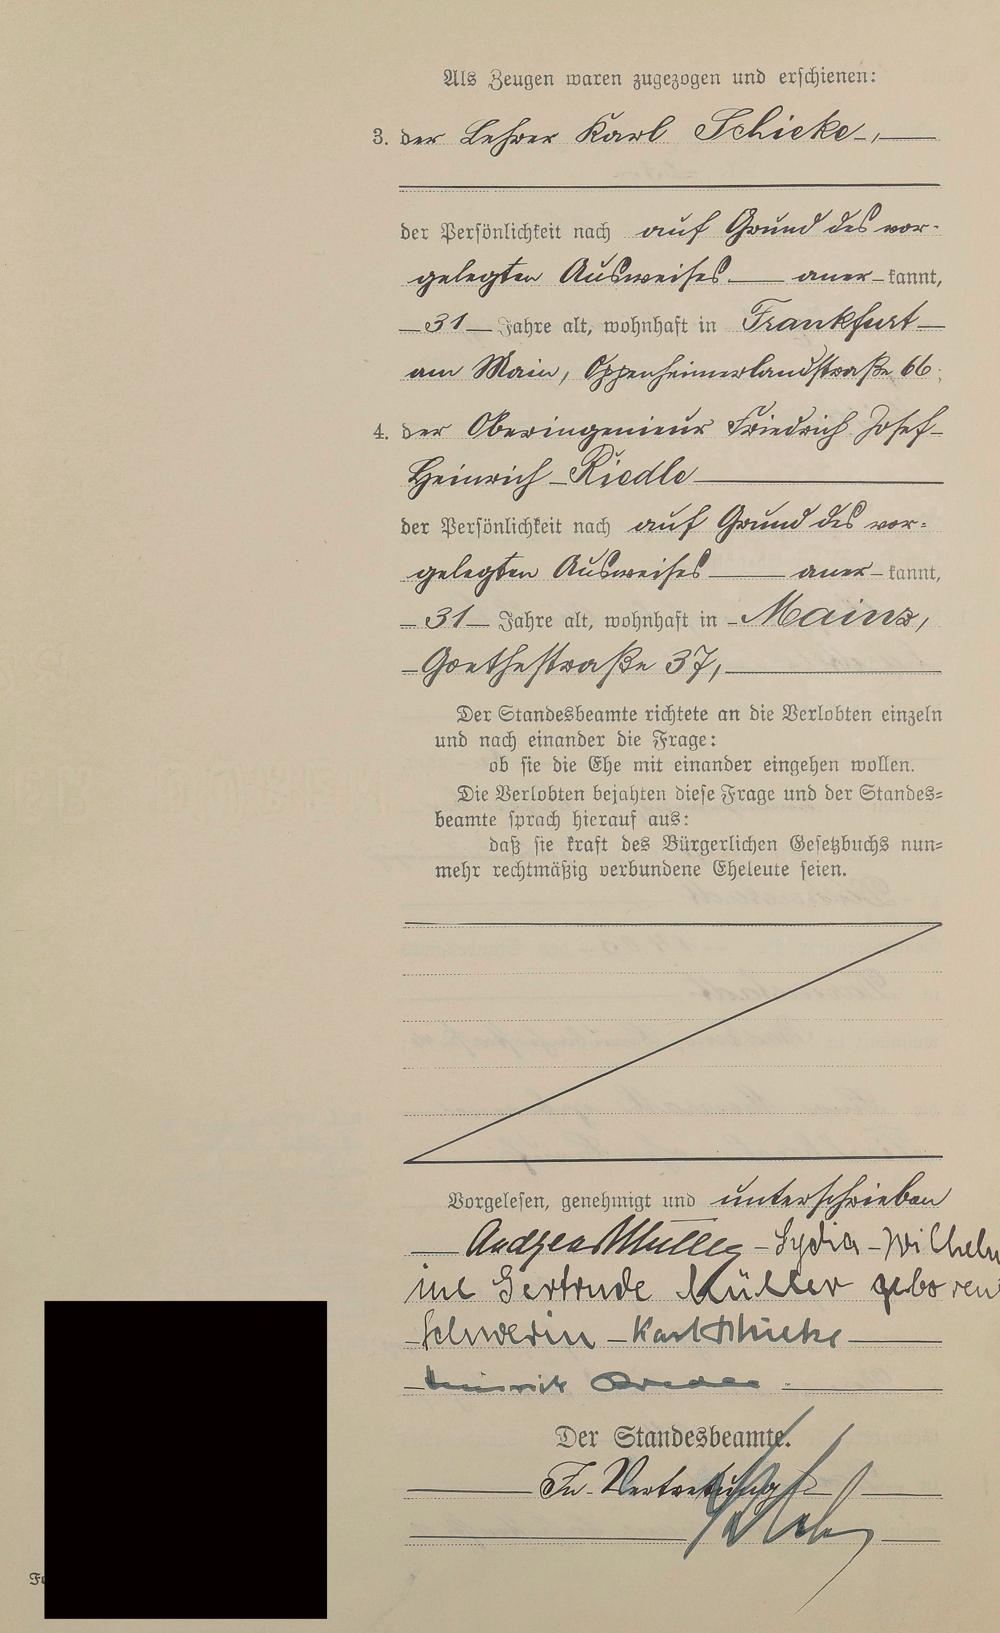 Als Zeugen waren zugezogen und erschienen:
3. der Lehrer Karl Schieke,
der Persönlichkeit nach auf Grund des vor-
gelegten Ausweises aner-kannt,
31 Jahre alt, wohnhaft in Frankfurt
am Main, Oppenheimerlandstraße 66.
4. der Oberingenieur Friedrich Josef
Heinrich Riedle
der Persönlichkeit nach auf Grund des vor-
gelegten Ausweises aner-kannt,
31 Jahre alt, wohnhaft in Mainz,
Goethestraße 37,
Der Standesbeamte richtete an die Verlobten einzeln
und nach einander die Frage:
ob sie die Ehe mit einander eingehen wollen.
Die Verlobten bejahten diese Frage und der Standes-
beamte sprach hierauf aus:
daß sie kraft des Bürgerlichen Gesetzbuchs nun-
mehr rechtmäßig verbundene Eheleute seien.
Vorgelesen, genehmigt und unterschrieben
Andreas Müller Lydia Wilhelm
ine Gertrude Müller geboren
Schwerin Karl Schieke
Heinrich
Der Standesbeamte.
In Vertretung